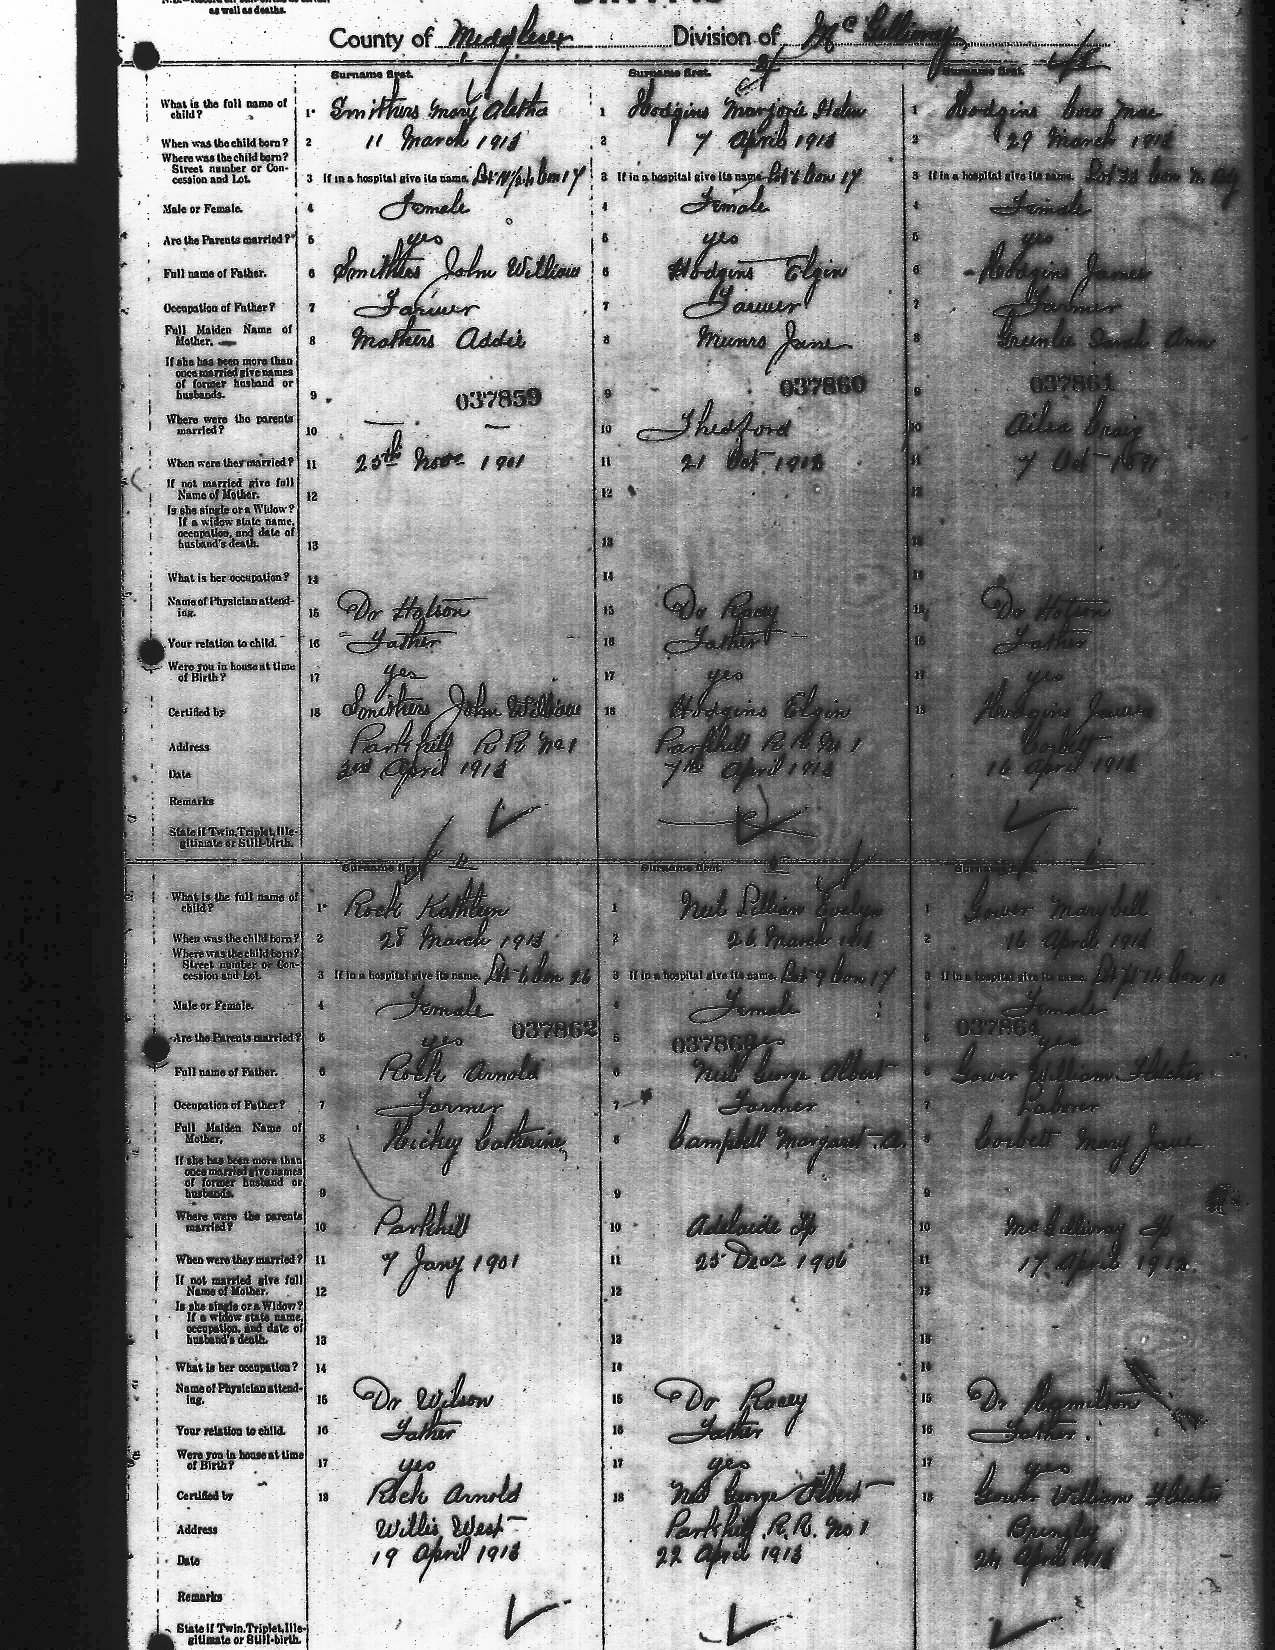 as well as deaths.
County of Middlesex Division of Mc Gillivray
Surname first. Surname first. Surname first.
What is the full name of child? 1 Smithers Mary Aletha 1 Hodgins Marjorie Helen 1 Hodgins Cora Mae
When was the child born? 2 11 March 1913 2 7 April 1913 2 29 March 1913
Where was the child born? Street number or Concession and Lot. 3 If in a hospital give its name. Con 17 3 If in a hospital give its name. Lot 6 Con 17 3 If in a hospital give its name. Lot Con
Male or Female. 4 Female 4 Female 4 Female
Are the Parents married? 5 yes 5 yes 5 yes
Full name of Father. 6 Smithers John William 6 Hodgins Elgin 6 Hodgins James
Occupation of Father? 7 Farmer 7 Farmer 7 Farmer
Full Maiden Name of Mother. 8 Mathers Addie 8 Munro Jane 8 Greenlee Sarah Ann
If she has been more than once married give names of former husband or husbands. 9 037859 9 037860 9 037861
Where were the parents married? 10 — — 10 Thedford 10 Ailsa Craig
When were they married? 11 25th Nove 1901 11 21 Oct 1912 11 7 Oct 1891
If not married give full Name of Mother. 12 12 12
Is she single or a Widow? If a widow state name, occupation, and date of husband's death. 13 13 13
What is her occupation? 14 14 14
Name of Physician attending. 15 Dr Hotson 15 Dr Racey 15 Dr Hotson
Your relation to child. 16 Father 16 Father 16 Father
Were you in house at time of Birth? 17 yes 17 yes 17 yes
Certified by 18 Smithers John William 18 Hodgins Elgin 18 Hodgins James
Address Parkhill R R No 1 Parkhill R R No 1 Corbett
Date 3rd April 1913 7th April 1913 16 April 1913
Remarks
State if Twin, Triplet, Illegitimate or Still-birth.
Surname first. Surname first. Surname first.
What is the full name of child? 1 Rock Kathlyn 1 Neil Lillian Evelyn 1 Gower Marybell
When was the child born? 2 28 March 1913 2 26 March 1913 2 16 April 1913
Where was the child born? Street number or Concession and Lot. 3 If in a hospital give its name. Lot 6 Con 26 3 If in a hospital give its name. Lot 9 Con 17 3 If in a hospital give its name. Lot Con
Male or Female. 4 Female 4 Female 4 Female
Are the Parents married? 5 yes 037862 5 037863 yes 5 037864 yes
Full name of Father. 6 Rock Arnold 6 Neil George Albert 6 Gower William
Occupation of Father? 7 Farmer 7 Farmer 7 Laborer
Full Maiden Name of Mother. 8 Hickey Catherine 8 Campbell Margaret A. 8 Corbett Mary Jane
If she has been more than once married give names of former husband or husbands. 9 9 9
Where were the parents married? 10 Parkhill 10 Adelaide Tp 10 McGillivray Tp
When were they married? 11 7 Jany 1901 11 25 Decr 1906 11 17 April 1912
If not married give full Name of Mother. 12 12 12
Is she single or a Widow? If a widow state name, occupation, and date of husband's death. 13 13 13
What is her occupation? 14 14 14
Name of Physician attending. 15 Dr Wilson 15 Dr Racey 15 Dr Hamilton
Your relation to child. 16 Father 16 Father 16 Father
Were you in house at time of Birth? 17 yes 17 yes 17 yes
Certified by 18 Rock Arnold 18 Neil George Albert 18 Gower William
Address Willis West Parkhill R.R. No 1 Brinsley
Date 19 April 1913 22 April 1913 24 April 1913
Remarks
State if Twin, Triplet, Illegitimate or Still-birth.